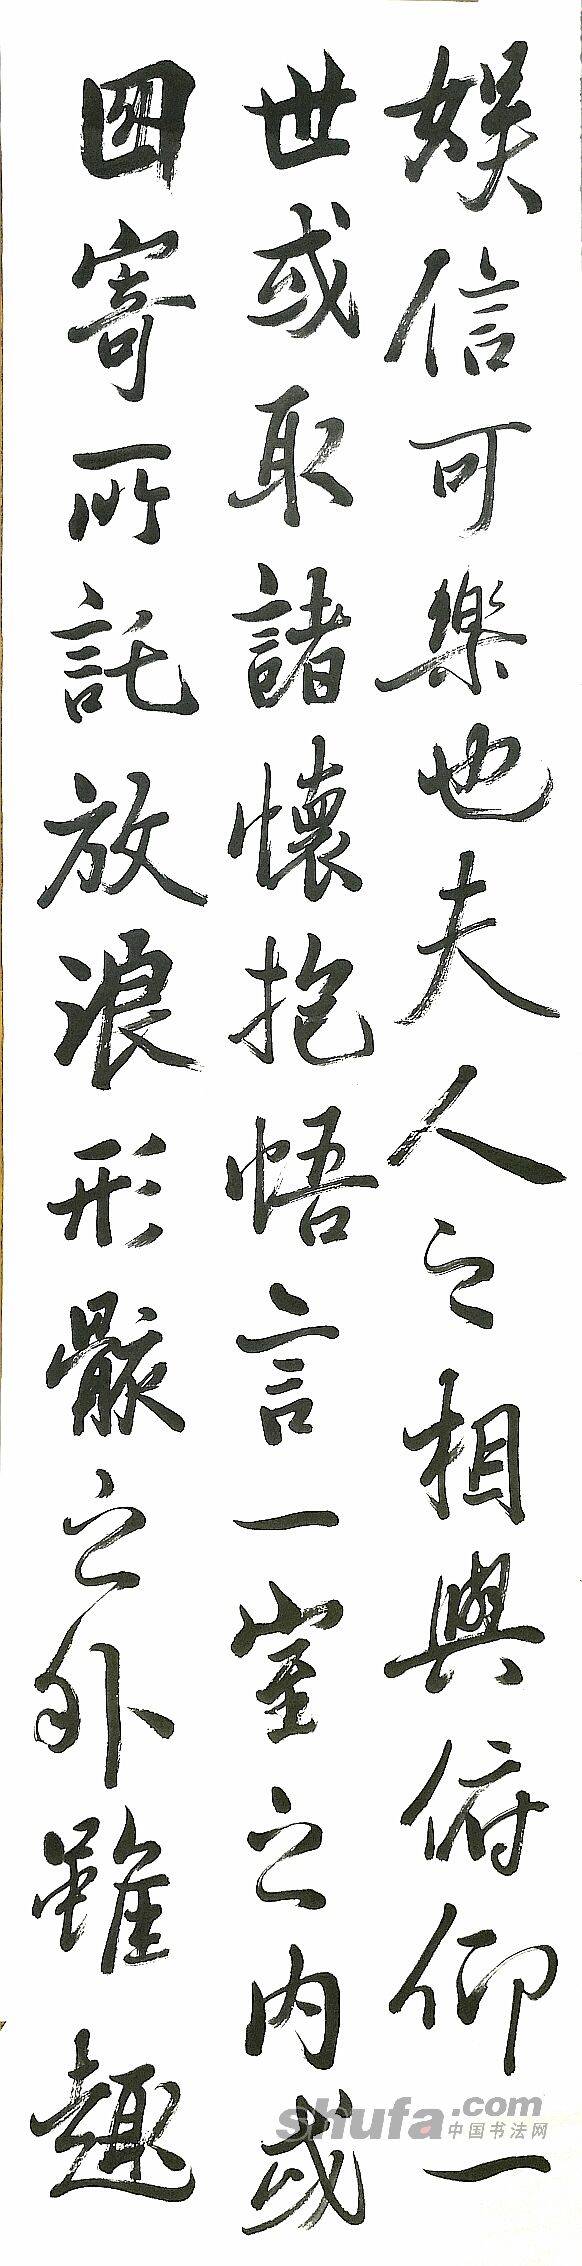 娱信可樂也夫人之相與俯仰一
世或取諸懷抱悟言一室之内或
因寄所託放浪形骸之外雖趣
shufa.com
中国书法网